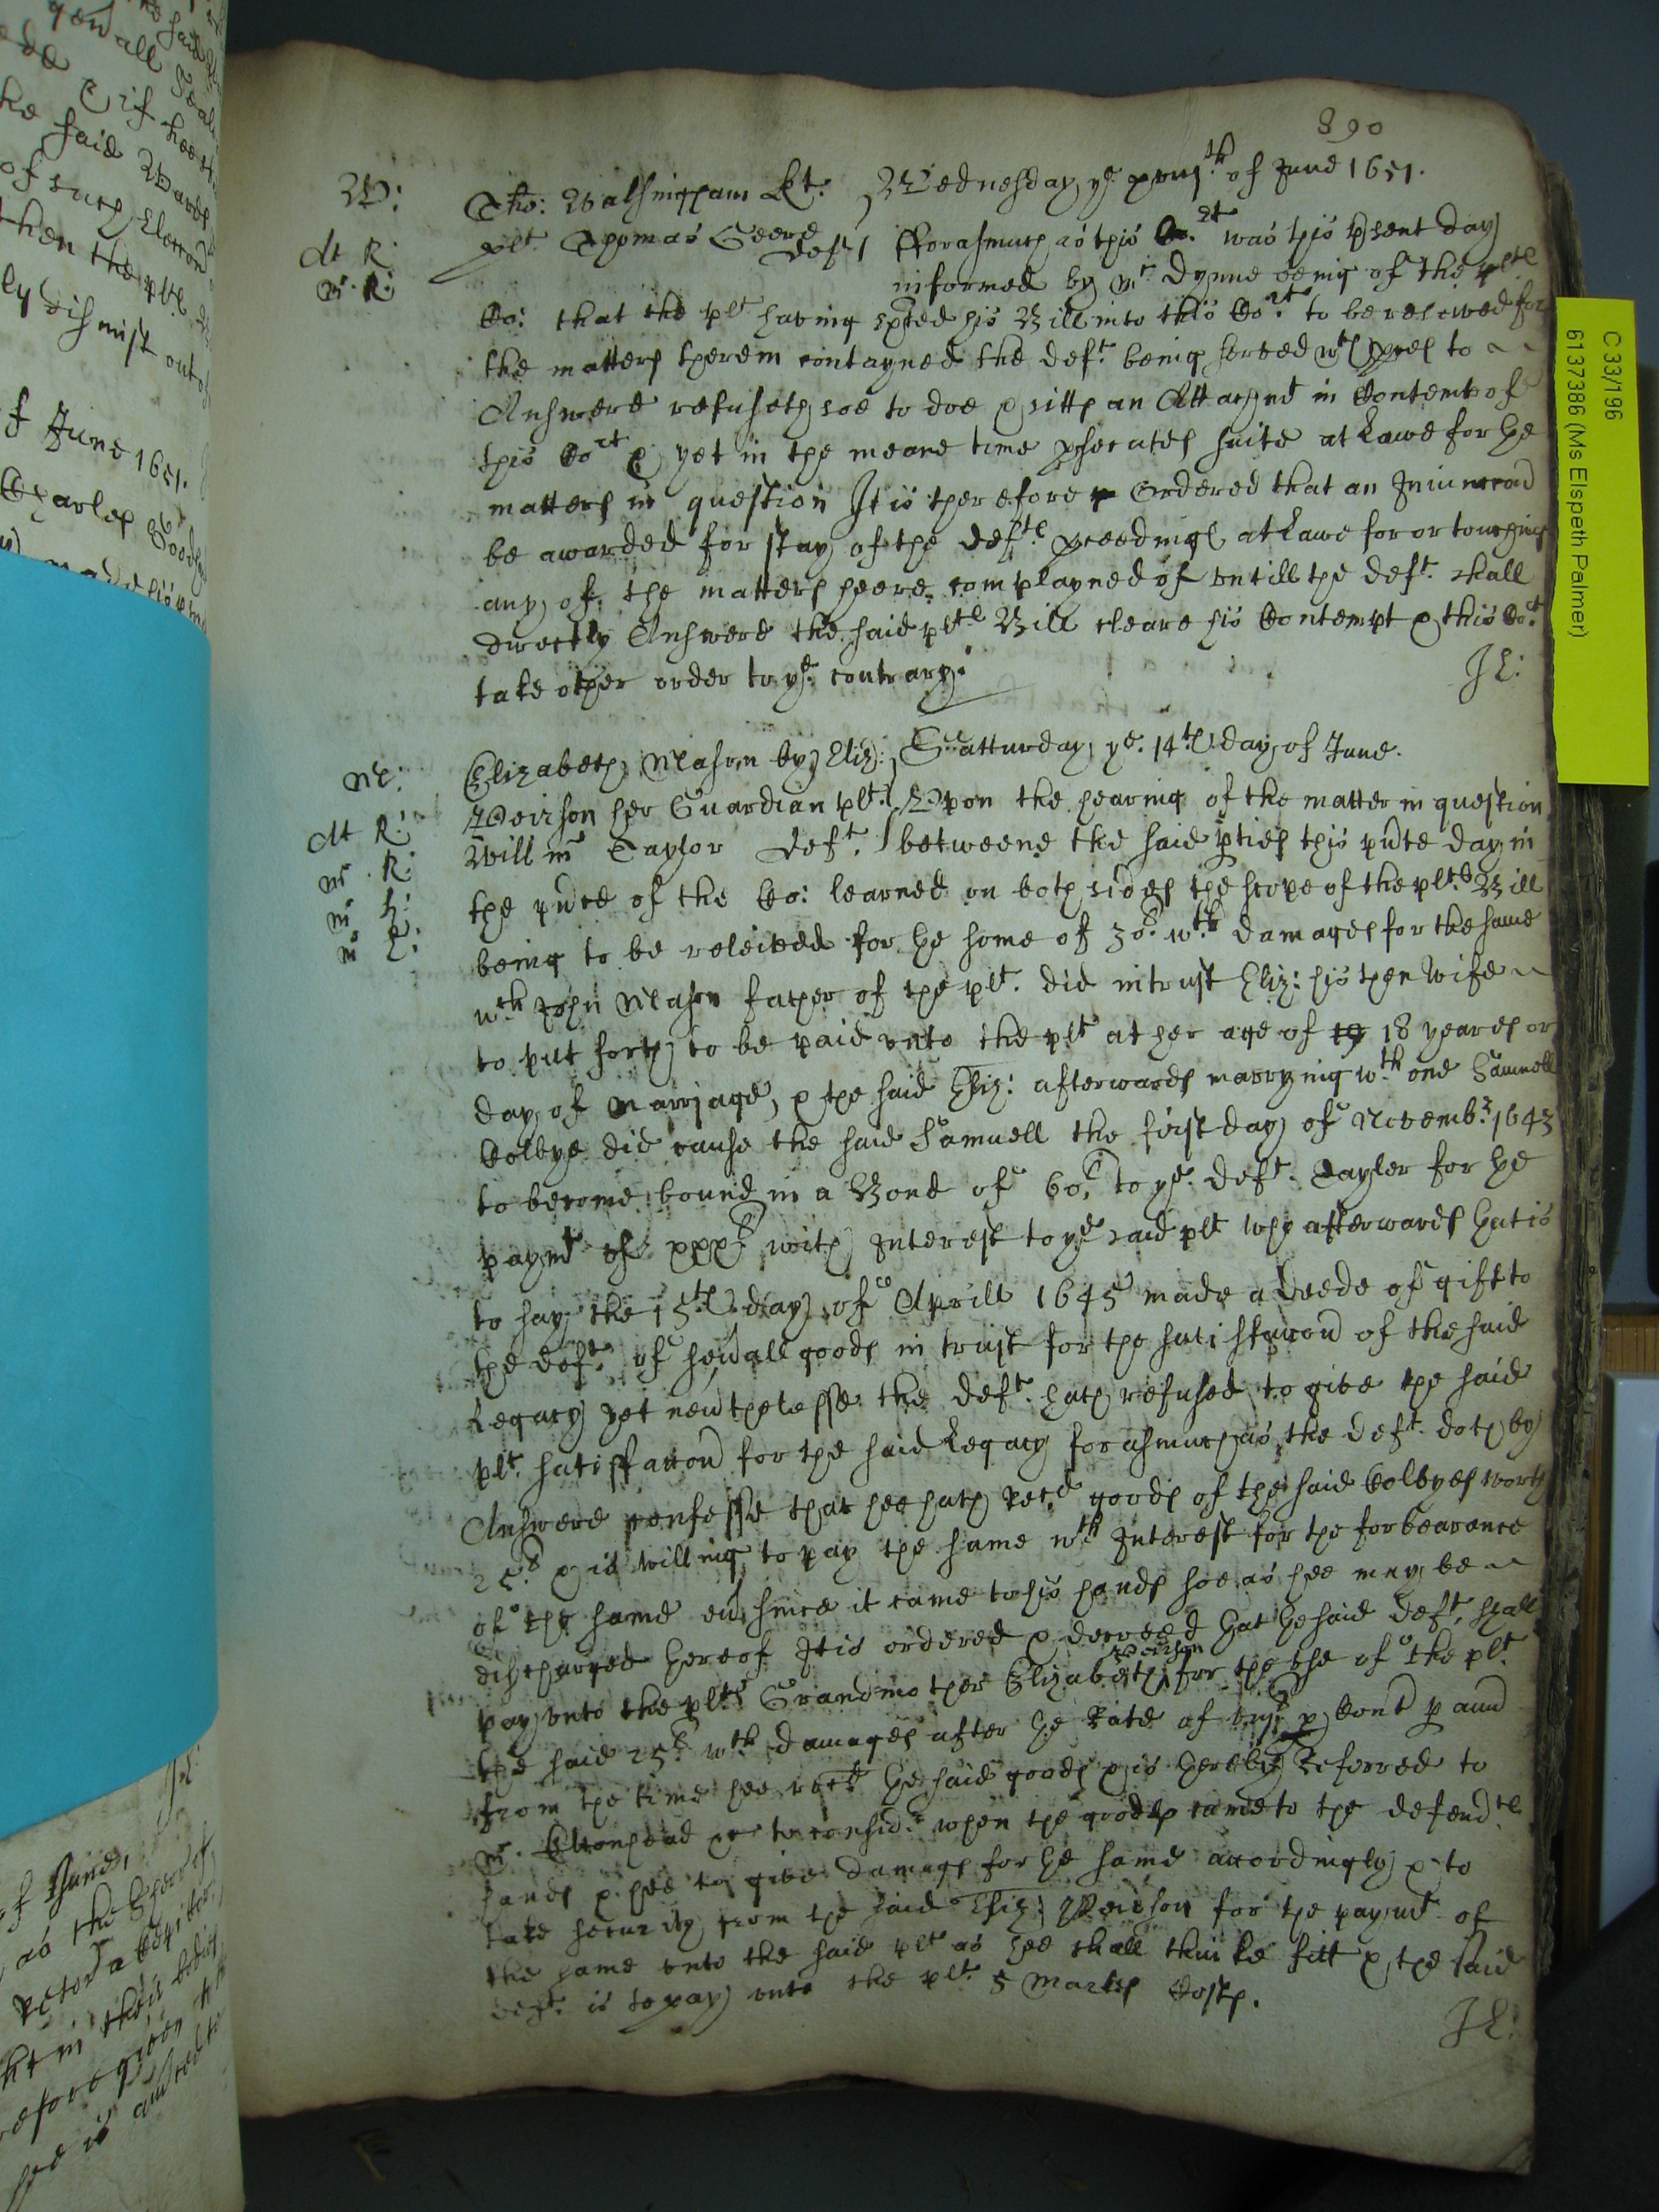 890
W:
Tho: Walsingham Kt. Wednesday ye xviijth of June 1651.
plt. Thomas Geere deft
Mr R: Forasmuch as this Cort was this psent day
informed by Mr. Dynne being of the pltes
Co: that the plt having his Bill into this Cort to be releived for
the matters therein contayned the deft being served wth proces to
Answere refuseth soe to doe & sitts an Attachmt in Contempt of
this Cort & yet in the meane time psecutes suite at Lawe for the
matters in question It is therefore Ordered that an Iniuncon
be awarded for stay of the deftes proceedings at Lawe for or touching
any of the matters heere complayned of untill the deft. shall
directly Answere the said pltes Bill cleare his Contempt & this Cort
take other order to ye contrary.
M:
Elizabeth Mason by Eliz: Satturday ye. 14th day of June.
Weirson her Guardian plt. Upon the hearing of the matter in question
Willm Taylor Deft. betweene the said pties this pnte day in
the pnce of the Co: learned on both sides the scope of the pltes Bill
being to be releived for the some of 30l wth damages for the same
wch John Mason father of the plt. did intrust Eliz: his then Wife
to put forth to be paid unto the plt at her age of 18 yeares or
day of marriage, & the said Eliz: afterwards marrying wth one Samuell
Colbye did cause the said Samuell the first day of Novembr 1643
to become bound in a Bond of 60l to ye. deft. Tayler for the
paymt of xxxl with Interest to ye said plt who afterwards that is
to say the 15th day of Aprill 1645 made a Deede of gift to
the deft. of seuall goods in trust for the satisfaccon of the said
Legacy yet neutheless the deft. hath refused to give the said
plt. satisfaccon for the said Legacy forasmuch as the deft. doth by
Answere confesse that hee hath recd goods of the said Colbyes worth
25l & is willing to pay the same wth Interest for the forbearance
of the same eu since it came to his hands soe as hee may be
discharged thereof It is ordered & decreed that the said deft. shall
pay unto the pltes Grandmother Elizabeth Weirson for the use of the plt.
the said 25l. wth damages after the Rate of viijl p Cent p ann
from the time hee recd the said goods & is hereby Referred to
Mr. Eltonhead to considr when the goods came to the defendtes
hands & hee to give damages for the same accordingly & to
take security from the said Eliz: Weirson for the paymt of
the same unto the said plt as hee shall thinke fitt & the said
deft. is to pay unto the plt. 5 Markes Costs.
C 33/196
6137386 (Ms Elspeth Palmer)